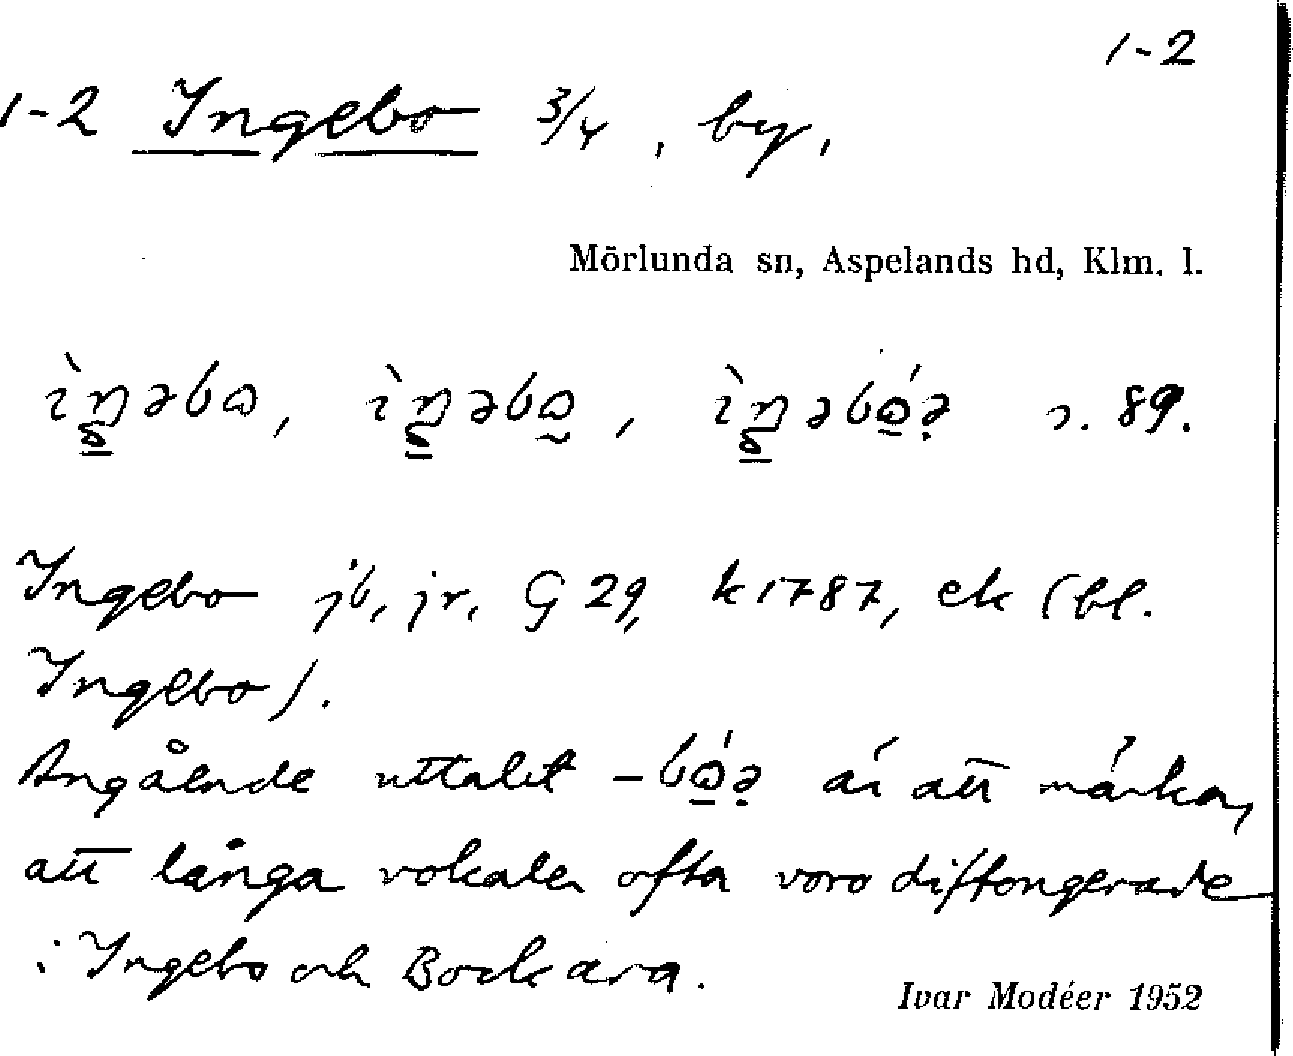 1-2
1-2 Ingebo 3/4, by,
Mörlunda sn, Aspelands hd, Klm. l.
s. 89.
Ingebo jb, jr, G 29, k 1787, ek (bl.
Ingebo).
Angående uttalet är att märka,
att långa vokaler ofta voro diftongerade
i Ingebo och Bockara.
Ivar Modéer 1952